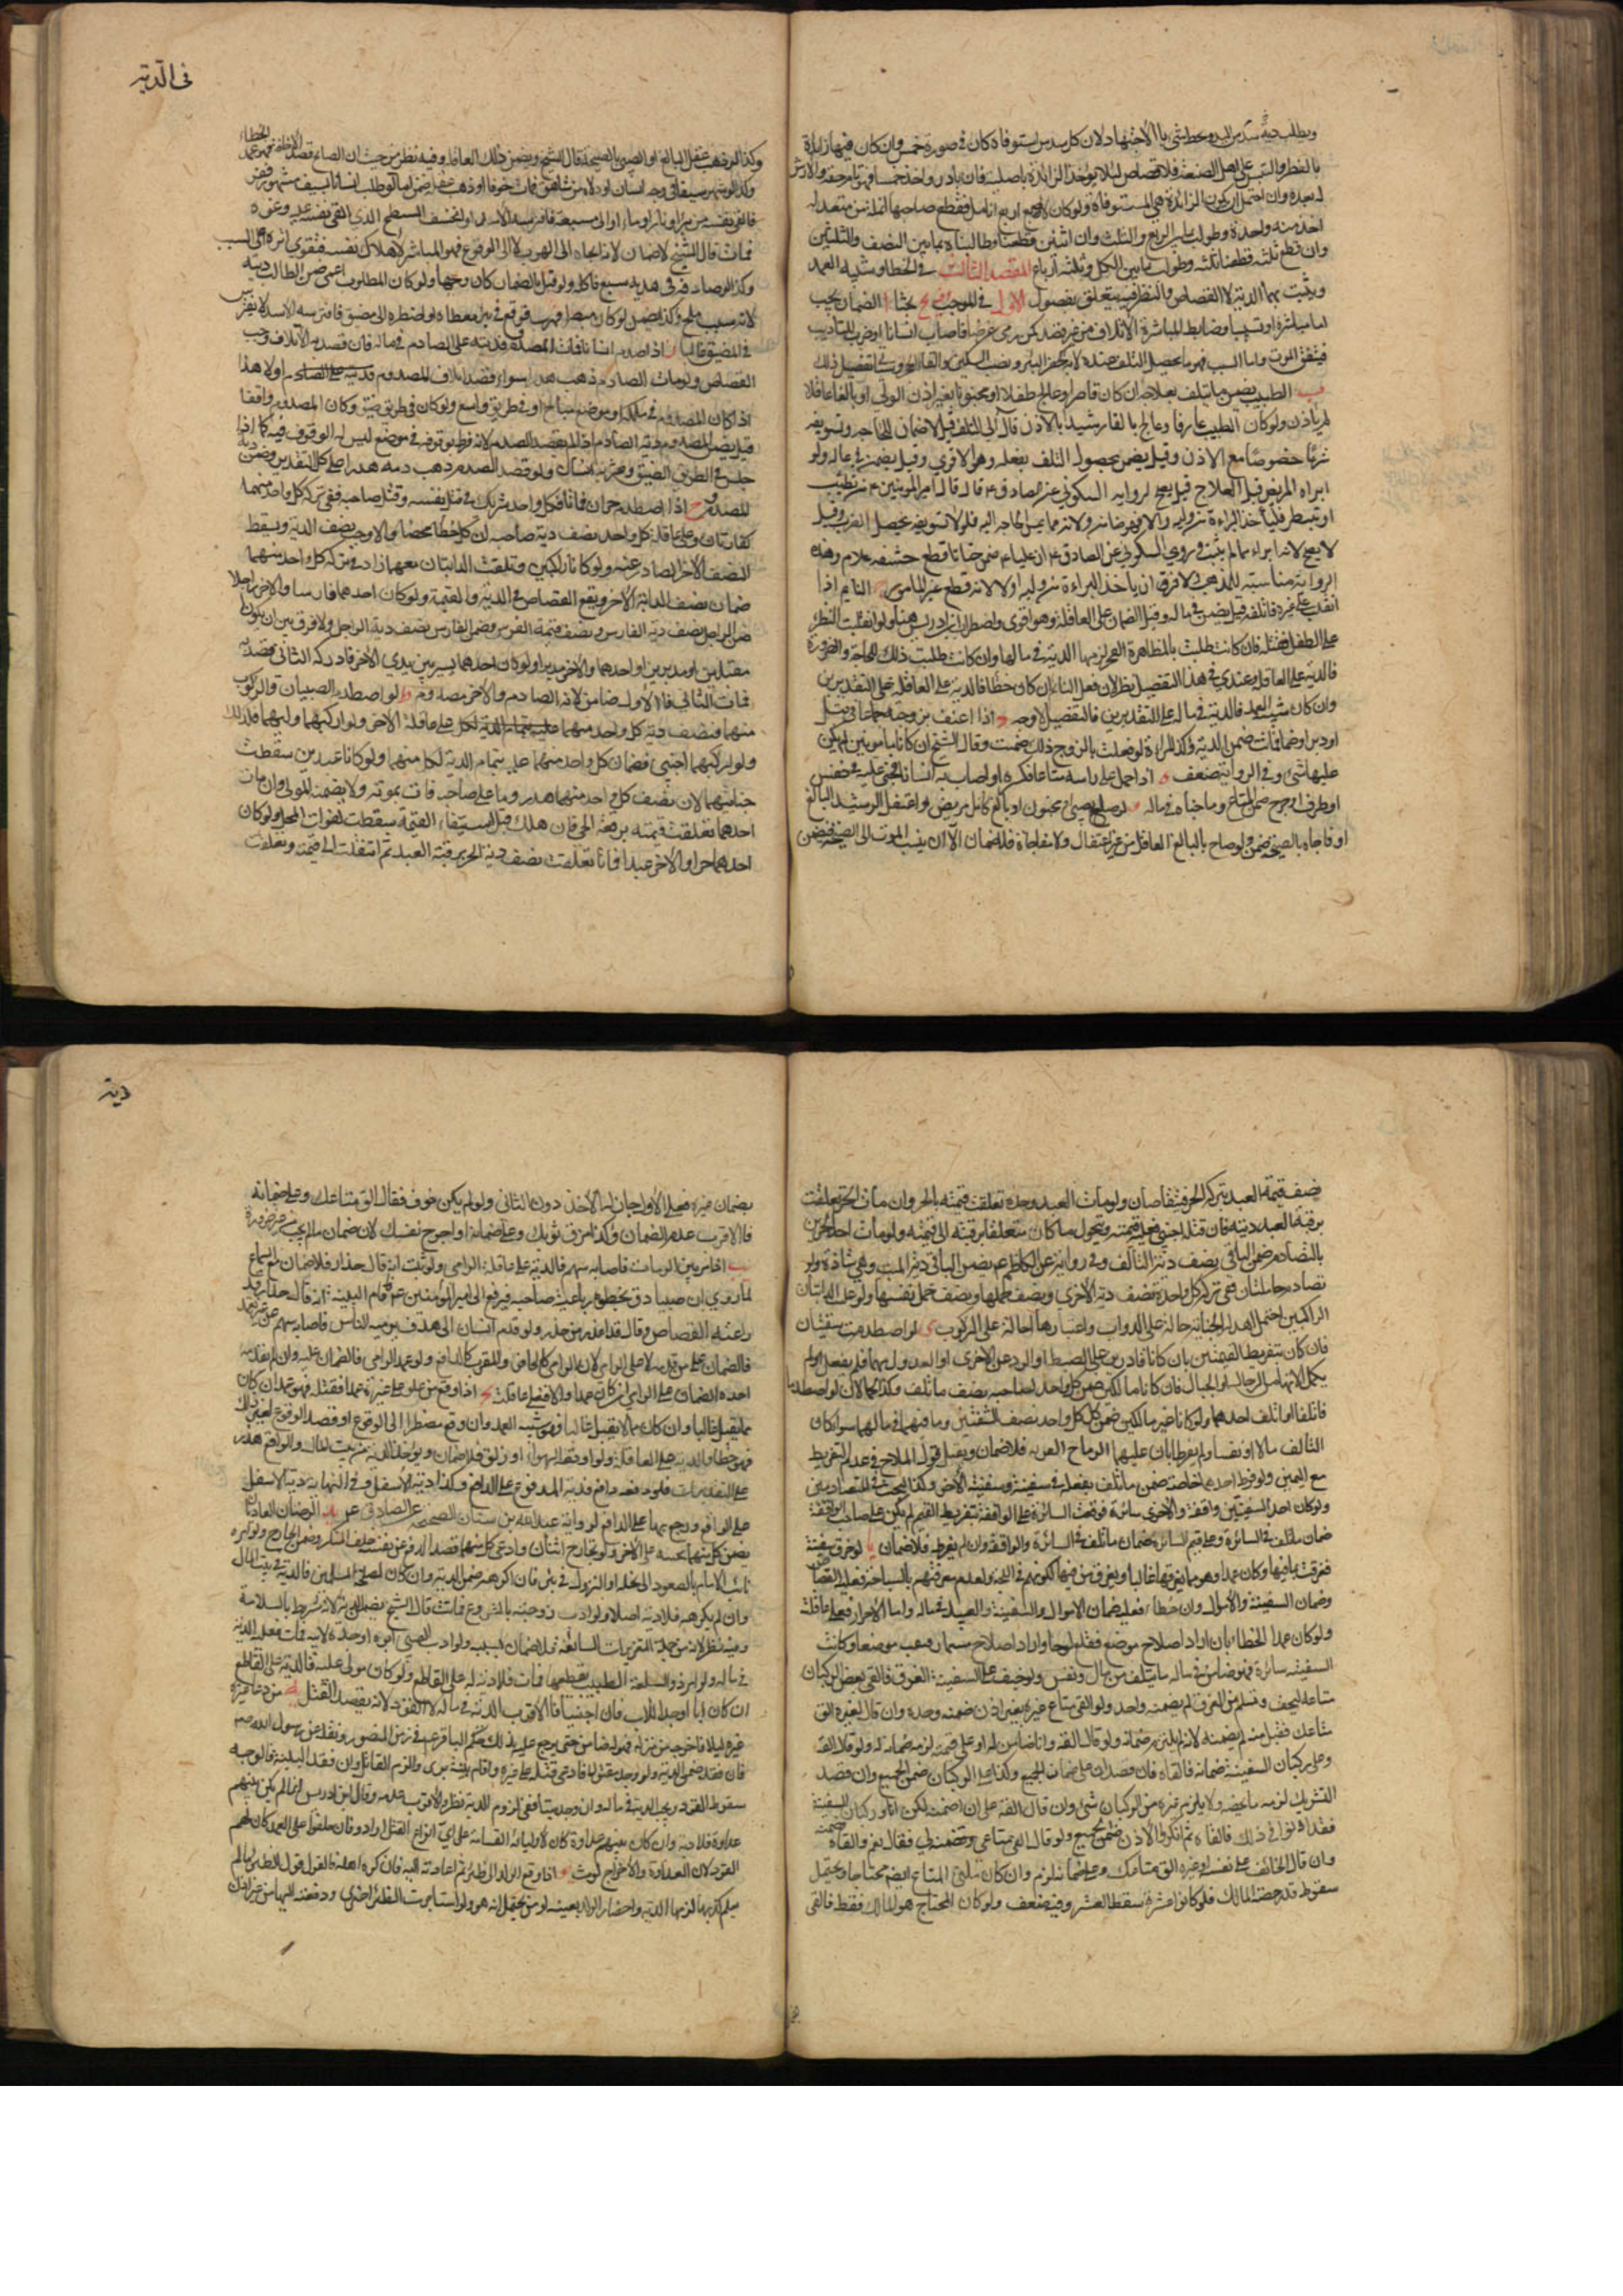 ويطلب دية سدس اليد وحط شيء بالاجتهاد لان كل سدس استوفاه كان في صورة خمس وان كان فيها زائدة
بالفطر والتبس على اهل الصنعة فلا قصاص لئلا يؤخذ الزائدة باصلية فان بادر واخذ خمسا فهو تمام حقه والارش
له بعده وان احتمل ان يكون الزائدة هي المستوفاة ولو كان لاصبع اربع انامل فقطع صاحبها انملة من معتدل
اخذ منه واحدة وطولب بما بين الربع والثلث وان اثنتين قطعنا وطالبناه بما بين النصف والثلثين
وان قطع ثلثة قطعنا ثلثة وطولب ما بين الكل وثلثة ارباع المقصد الثالث في الخطا وشبيه العمد
ويثبت بهما الدية لا القصاص والنظر فيه يتعلق بفصول الاول في الموجب بحثا ا الضمان يجب
اما مباشرة او تسبيبا وضابط المباشرة الاتلاف من غير قصد كمن رمى غرضا فاصاب انسانا او ضرب للتاديب
فيتفق الموت واما السبب فهو ما يحصل التلف عنده لا به كحفر البئر ونصب السكين والقاء الحجر وسياتي تفصيل ذلك
ب الطبيب يضمن ما يتلف بعلاجه ان كان قاصرا وعالج طفلا او مجنونا بغير اذن الولي او بالغا عاقلا
لم ياذن ولو كان الطبيب عارفا وعالج بالغا رشيدا بالاذن فآل الى التلف قيل لا ضمان للحاجة وتسويغه
شرعا خصوصا مع الاذن وقيل يضمن لحصول التلف بفعله وهو الاقوى وقيل يضمن في ماله ولو
ابراه المريض قبل العلاج قيل يصح لرواية السكوني عن الصادق ع قال قال امير المومنين ع من تطبب
او تبيطر فليأخذ البراءة من وليه والا فهو ضامن ولانه مما يمس الحاجة اليه فلو لا تسويغه لحصل الضرر وقيل
لا يصح لانه ابراء مما لم يثبت وروى السكوني عن الصادق ع ان عليا ع ضمن ختانا قطع حشفة غلام وهذه
الرواية مناسبة للمذهب ولا فرق ان ياخذ البراءة من وليه او لا لانه قطع غير المامور النايم اذا
انقلب على غيره فاتلفه قيل يضمن في ماله وقيل الضمان على العاقلة وهو اقوى واضطرب ابن ادريس هنا ولو انقلبت الظئر
على الطفل فقتله فان كانت طلبت بالمظاهرة الفخر لزمها الدية في مالها وان كانت طلبت ذلك للحاجة والضرورة
فالدية على العاقلة وعندي في هذا التفصيل نظر لان فعل النائم ان كان خطأ فالدية على العاقلة على التقديرين
وان كان شبيه العمد فالدية في ماله على التقديرين فالتفصيل لا وجه د اذا اعنف بزوجته جماعا في قبل
او دبر او ضما فماتت ضمن الدية وكذا المراة لو فعلت بالزوج ذلك ضمنت وقال الشيخ ان كانا مامونين لم يكن
عليها شيء وفي الرواية ضعف ه اذا حمل على راسه متاعا فكسره او اصاب به انسانا فجنى عليه في نفس
او طرف او جرح ضمن المتاع وما جناه في ماله و لو صاح بصبي او مجنون او بالغ كامل مريض او اغتفل الرشيد البالغ
او فاجاه بالصيحة ضمن ولو صاح بالبالغ العاقل من غير اغتفال ولا مفاجاة فلا ضمان الا ان ينسب الموت الى الصيحة فيضمن
في الدية
وكذا لو ذهب عقل البالغ او الصبي بالصيحة قال الشيخ ويضمن ذلك العاقلة وفيه نظر من حيث ان الصايح قصد الاخافة فهو عمد الخطاء
وكذا لو شهر سيفا في وجه انسان او دلاه من شاهق فمات خوفا او ذهب عقله ضمن اما لو طلب انسانا بسيف مشهور ففر
فالقى نفسه من بئر او نار او ماء او الى مسبعة فافترسه الاسد او انخسف السطح الذي القى نفسه عليه وغيره
فمات قال الشيخ لا ضمان لانه الجاه الى الهرب لا الى الوقوع فهو المباشر لاهلاك نفسه فتقوى اثره على السبب
وكذا لو صادفه في هربه سبع فاكله ولو قيل بالضمان كان وجها ولو كان المطلوب اعمى ضمن الطالب ديته
لانه سبب ملجئ وكذا يضمن لو كان مبصرا فهرب فوقع في بئر مغطاة او اضطره الى مضيق فافترسه الاسد لانه يفترس
في المضيق غالبا ز اذا صدم انسانا فمات المصدوم فديته على الصادم في ماله فان قصد به الاتلاف وجب
القصاص ولو مات الصادم ذهب هدرا سواء قصد اتلاف المصدوم او لا هذا
اذا كان المصدوم في ملكه او موضع مباح او في طريق واسع ولو كان في طريق ضيق وكان المصدوم واقفا
قيل يضمن المصدوم دية الصادم اذا لم يقصد الصدم لانه فرط بوقوفه في موضع ليس له الوقوف فيه كما اذا
جلس في الطريق الضيق وعثر به انسان ولو قصد الصدم ذهب دمه هدرا على كلا التقديرين وضمن دية
المصدوم ح اذا اصطدم حران فماتا فكل واحد شريك في قتل نفسه وقتل صاحبه ففي تركة كل واحد منهما
كفارتان وعلى عاقلة كل واحد نصف دية صاحبه ان كان خطأ محضا والا وجب نصف الدية ويسقط
النصف الاخر الصادر عنه ولو كانا راكبين وتلفت الدابتان معهما زاد في تركة كل واحد منهما
ضمان نصف الدابة الاخر ويقع القصاص في الدية والقيمة ولو كان احدهما فارسا والاخر راجلا
ضمن الراجل نصف دية الفارس ونصف قيمة الفرس وضمن الفارس نصف دية الراجل ولا فرق بين ان يكونا
مقبلين او مدبرين او احدهما والاخر مدبرا ولو كان احدهما يسير بين يدي الاخر فادركه الثاني فصدمه
فمات الثاني فالاول ضامن لانه الصادم والاخر مصدوم ط لو اصطدم الصبيان والركوب
منهما فنصف دية كل واحد منهما على عاقلة الاخر ولو اركبهما وليهما فكذلك
ولو اركبهما اجنبي فضمان كل واحد منهما عليه بتمام الدية لكل منهما ولو كانا عبدين سقطت
جنايتهما لان نصف كل واحد منهما هدر وما على صاحبه فات بموته ولا يضمنه المولى وان مات
احدهما تعلقت قيمته برقبة الحي فان هلك قبل استيفاء القيمة سقطت لفوات المحل ولو كان
احدهما حرا والاخر عبدا فماتا تعلقت نصف دية الحر برقبة العبد ثم انتقلت الى قيمته وتعلقت
نصف قيمة العبد بتركة الحر فيتقاصان ولو مات العبد وحده تعلقت قيمته بالحر وان مات الحر تعلقت
برقبة العبد ديته فان قتله اجنبي فعليه قيمته وتحول ما كان متعلقا برقبته الى قيمته ولو مات احد الحرين
بالتصادم ضمن الباقي نصف دية التالف وفي رواية عن الكاظم ع يضمن الباقي دية الميت وهي شاذة ولو
تصادم حاملتان ففي تركة كل واحدة نصف دية الاخرى ونصف حملها ونصف حمل نفسها ولو غلبت الدابتان
الراكبين احتمل اهدار الجناية حالة على الدواب واعتبارها احالة على الركوب ي لو اصطدمت سفينتان
فان كان بتفريط القيمين بان كانا قادرين على الضبط او الرد عن الاخرى او العدول بهما فلم يفعلا او لم
يكملا الالة من الرجال او الحبال فان كانا مالكين ضمن كل واحد لصاحبه نصف ما تلف وكذا الحمالان لو اصطدما
فاتلفا او اتلف احدهما ولو كانا غير مالكين ضمن كل كل واحد نصف السفينتين وما فيهما في مالهما سواء كان
التالف مالا او نفسا ولو لم يفرطا بان غلبهما الرياح الغربه فلا ضمان ويقبل قول الملاح في عدم التفريط
مع اليمين ولو فرط احدهما خاصة ضمن ما تلف بفعله في سفينته وسفينة الاخر وكذا البحث في المتصادمين
ولو كان احد السفينتين واقفة والاخرى سائرة فوقعت السائرة على الواقفة بتفريط القيم لم يكن على صاحب الواقفة
ضمان ما تلف في السائرة وعلى قيم السائرة ضمان ما تلف في السائرة والواقفة وان لم يفرط فلا ضمان يا لو خرق سفينة
فغرقت بما فيها وكان عمدا وهو مما يغرقها غالبا ويغرق من فيها لكونهم في اللجة ولعدم معرفتهم بالسباحة فعليه القصاص
وضمان السفينة والاموال وان خطأ فعليه ضمان الاموال والسفينة والعبيد في ماله واما الاحرار فعلى عاقلته
ولو كان عمد الخطاء بان اراد اصلاح موضع فقلع لوحا واراد اصلاح مسمار فنقب موضعا وكانت
السفينة سائرة فهو ضامن في ماله ما يتلف من مال ونفس ولو خيف على السفينة الغرق فالقى بعض الركبان
متاعه ليخف وتسلم من الغرق لم يضمنه واحد ولو القى متاع غيره بغير اذن ضمنه وحده وان قال لغيره الق
متاعك فقبل منه لم يضمنه لانه لم يلتزم ضمانه ولو قال القه وانا ضامن له او على قيمته لزمه ضمانه له ولو قال القه
وعلى ركبان السفينة ضمانه فالقاه فان قصد ان على ضمان الجميع وكذا على الركبان ضمن الجميع وان قصد
التشريك لزمه ما يخصه ولا يلزم غيره من الركبان شيء وان قال القه على ان اضمنه لكن انا وركبان السفينة
فقد اذنوا في ذلك فالقاه ثم انكروا الاذن ضمن الجميع ولو قال القى متاعي وتضمنه لي فقال نعم والقاه ضمنه
وان قال الخائف على نفسه او غيره الق متاعك وعلي ضمانه لزم وان كان ملقي المتاع ايضا محتاجا ويحتمل
سقوط قدر حصة المالك فلو كانوا عشرة سقط العشر وفيه ضعف ولو كان المحتاج هو المالك فقط فالقى
دية
بضمان غيره فعلى الاول جاز له الاخذ دون الثاني ولو لم يكن خوف فقال الق متاعك وعلي ضمانه
فالاقرب عدم الضمان وكذا مزق ثوبك وعلي ضمانه او اجرح نفسك لان ضمان ما لم يجب من غير ضرورة
يب اذا مر بين الرماة فاصابه سهم فالدية على عاقلة الرامي ولو ثبت انه قال حذار فلا ضمان ان سمع
لما روي ان صبيا دق بخطره رباعية صاحبه فرفع الى امير المومنين ع فاقام البينة انه قال حذار فد
راعنه القصاص وقال قد اعذر من حذر ولو قدم انسان الى هدف يرميه الناس فاصابه سهم عن غير تعمد
فالضمان على من قدمه لا على الرامي لان الرامي كالحافر والمقرب كالدافع ولو عمد الرامي فالضمان عليه وان لم يقدمه
احد فالضمان على الرامي ان كان عمدا والا فعلى عاقلته يج اذا وقع من علو على غيره عمدا فقتله فهو عمد ان كان
مما يقتل غالبا وان كان مما لا يقتل غالبا فهو شبيه العمد وان وقع مضطرا الى الوقوع او قصد الوقوع لغير ذلك
فهو خطا والدية على العاقلة ولو اوقعه الهواء او زلق فلا ضمان ويؤخذ الدية من بيت المال والواقع هدر
على التقديرات فلو دفعه دافع فدية المدفوع على الدافع وكذا دية الاسفل وفي النهاية دية الاسفل
على الواقع ويرجع بها على الدافع لرواية عبد الله بن سنان الصحيحة عن الصادق ع يد الزوجان العاديان
يضمن كل منهما بجنسه على الاخر ولو تجارح اثنان وادعى كل منهما قصد الدفع عن نفسه حلف المنكر وضمن الجارح ولو امره
نائب الامام بالصعود الى نخلة او النزول في بئر فان اكرهه ضمن الدية وان كان لمصلحة المسلمين فالدية في بيت المال
وان لم يكرهه فلا دية اصلا ولو ادب زوجته بالمشروع فماتت قال الشيخ يضمن الدية لانه مشروط بالسلامة
وفيه نظر لانه من جملة التعزيرات السائغة فلا ضمان بسببه ولو ادب الصبي ابوه او جده لابيه فمات فعليه الدية
في ماله ولو امر ذو السلعة الطبيب بقطعها فمات فلا دية له على القاطع ولو كان مولى عليه فالدية على القاطع
ان كان ابا او جدا للاب فان اجنبيا فالاقرب الدية في ماله لا القود لانه لم يقصد القتل يه من دعا غيره
ليلا فاخرجه من منزله فهو له ضامن حتى يرجع عليه وبذلك حكم الباقر ع في زمن المنصور ونقله عن رسول الله ص
فان فقد ضمن الدية ولو وجد مقتولا فادعى قتله على غيره واقام بينة برئ والزم القاتل وان فقد البينة فالوجه
سقوط القود وتجب الدية في ماله وان وجد ميتا ففي لزوم الدية نظر والاقرب عدمه وقال ابن ادريس ان لم يكن بينهم
عداوة فلا دية وان كان بينهم عداوة كان لاوليائه القسامة على اي انواع القتل ارادوا فان حلفوا على العمد كان لهم
القود لان العداوة والاخراج لوث يو اذا وقع الولد الى ظئر ثم اعادته اليه فانكره اهله فالقول قول الظئر ما لم
يعلم كذبها فيلزمها الدية واحضار الولد بعينه او من يحتمل انه هو ولو استاجرت الظئر اخرى ودفعته اليها من غير اذن